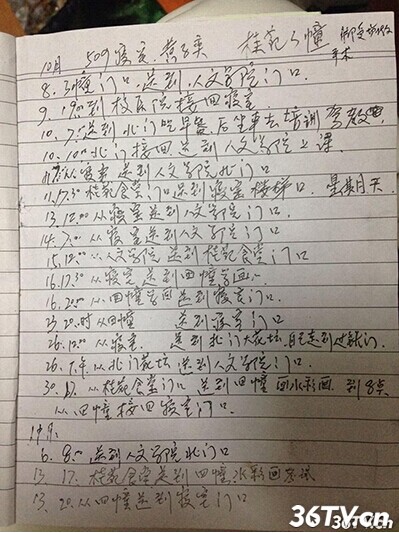 10月 509寝室 桂花3幢
8. 3幢门口送到人文学院门口
9. 19:00到校医院接回寝室
10. 7:送到北门吃早餐后坐车去培训
10. 10:00北门接回送到人文学院上课
送到人文学院北门口
11. 17:30桂花食堂门口送到寝室楼梯口. 星期天
13. 12:00从寝室送到人文学院门口.
14. 7:00从寝室送到人文学院门口
15. 12:00从人文学院送到桂花食堂门口
16. 17:30从寝室送到四幢学画.
16. 20:00从四幢学画送到寝室门口.
23. 20:时从四幢 送到寝室门口
26. 12:00从寝室. 送到北门大花坛.
26. 下午从北门花坛送到人文学院门口
30. 17. 从桂花食堂门口送到四幢画水彩画. 到8点
从四幢接回寝室门口.
6. 8:00送到人文学院北门口
13. 17. 桂花食堂送到四幢水彩画考试
13. 20. 从四幢送到寝室门口
36TV.cn
36TV.cn